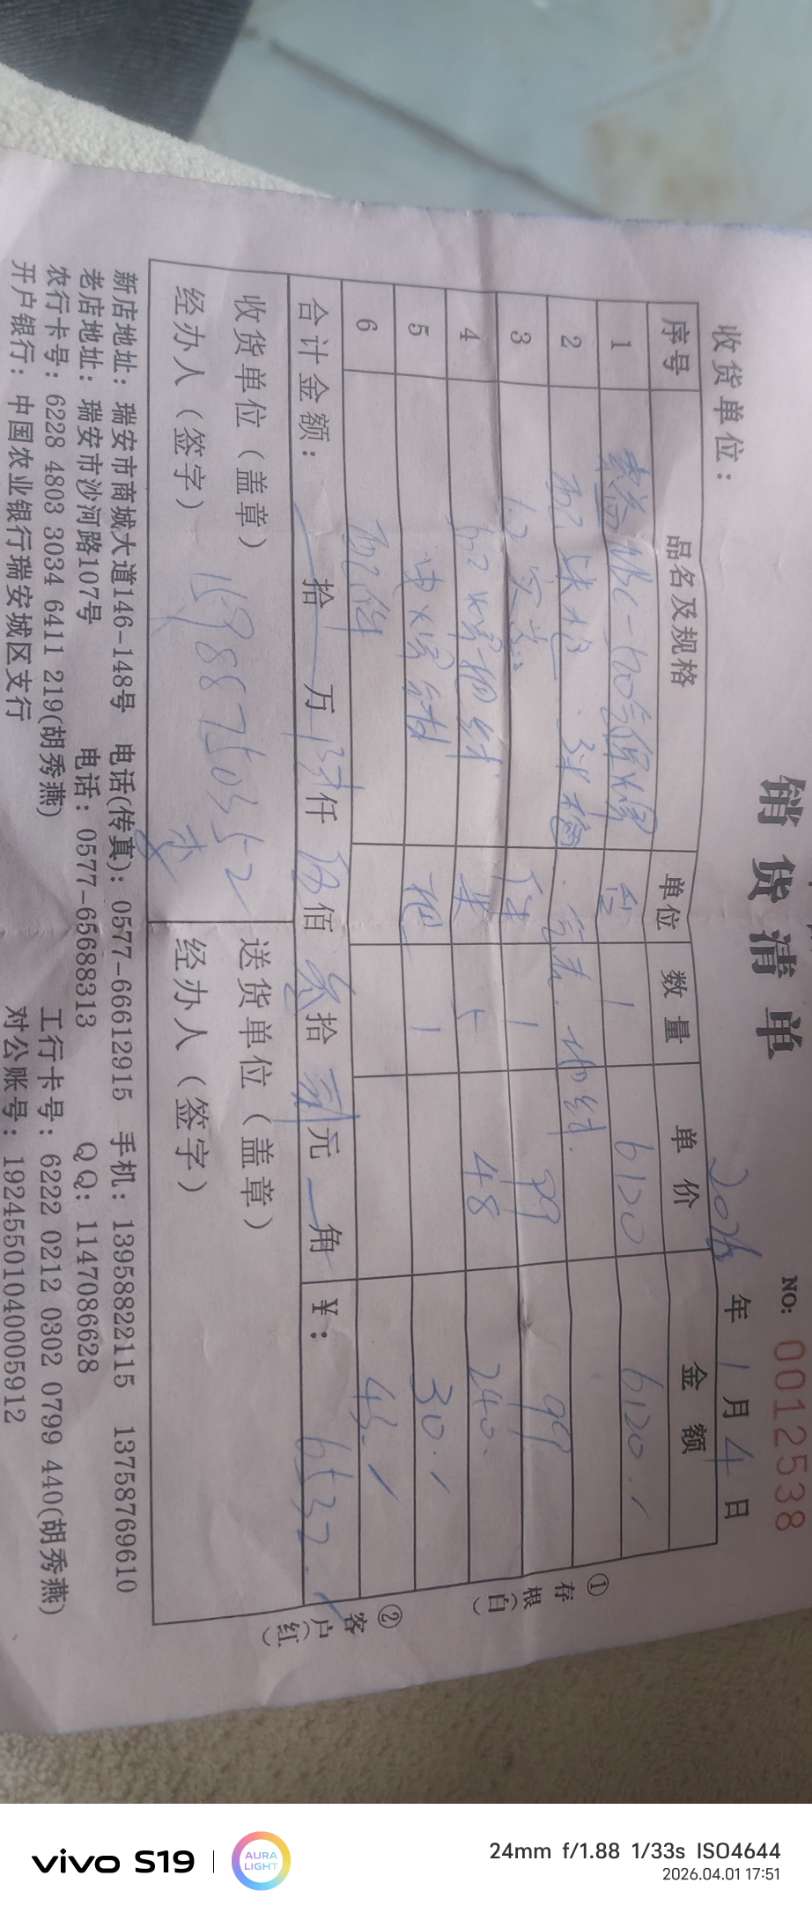 销货清单
NO: 0012538
收货单位： 2026年1月4日
序号 品名及规格 单位 数量 单价 金额
1 NBC- 台 1 6120 6120.
2 配 地线.
3 1 99 99
4 48 240.
5 把 1 30.
6 配件 43.
合计金额： 拾 万 陆仟 伍佰 叁拾 贰元 角 ¥： 6532.
收货单位（盖章） 15988750352 送货单位（盖章）
经办人（签字） 经办人（签字）
①存根（白）
②客户（红）
新店地址：瑞安市商城大道146-148号 电话(传真)：0577-66612915 手机：13958822115 13758769610
老店地址：瑞安市沙河路107号 电话：0577-65688313 QQ：1147086628
农行卡号：6228 4803 3034 6411 219(胡秀燕) 工行卡号：6222 0212 0302 0799 440(胡秀燕)
开户银行：中国农业银行瑞安城区支行 对公账号：19245501040005912
vivo S19
AURA LIGHT
24mm f/1.88 1/33s ISO4644
2026.04.01 17:51